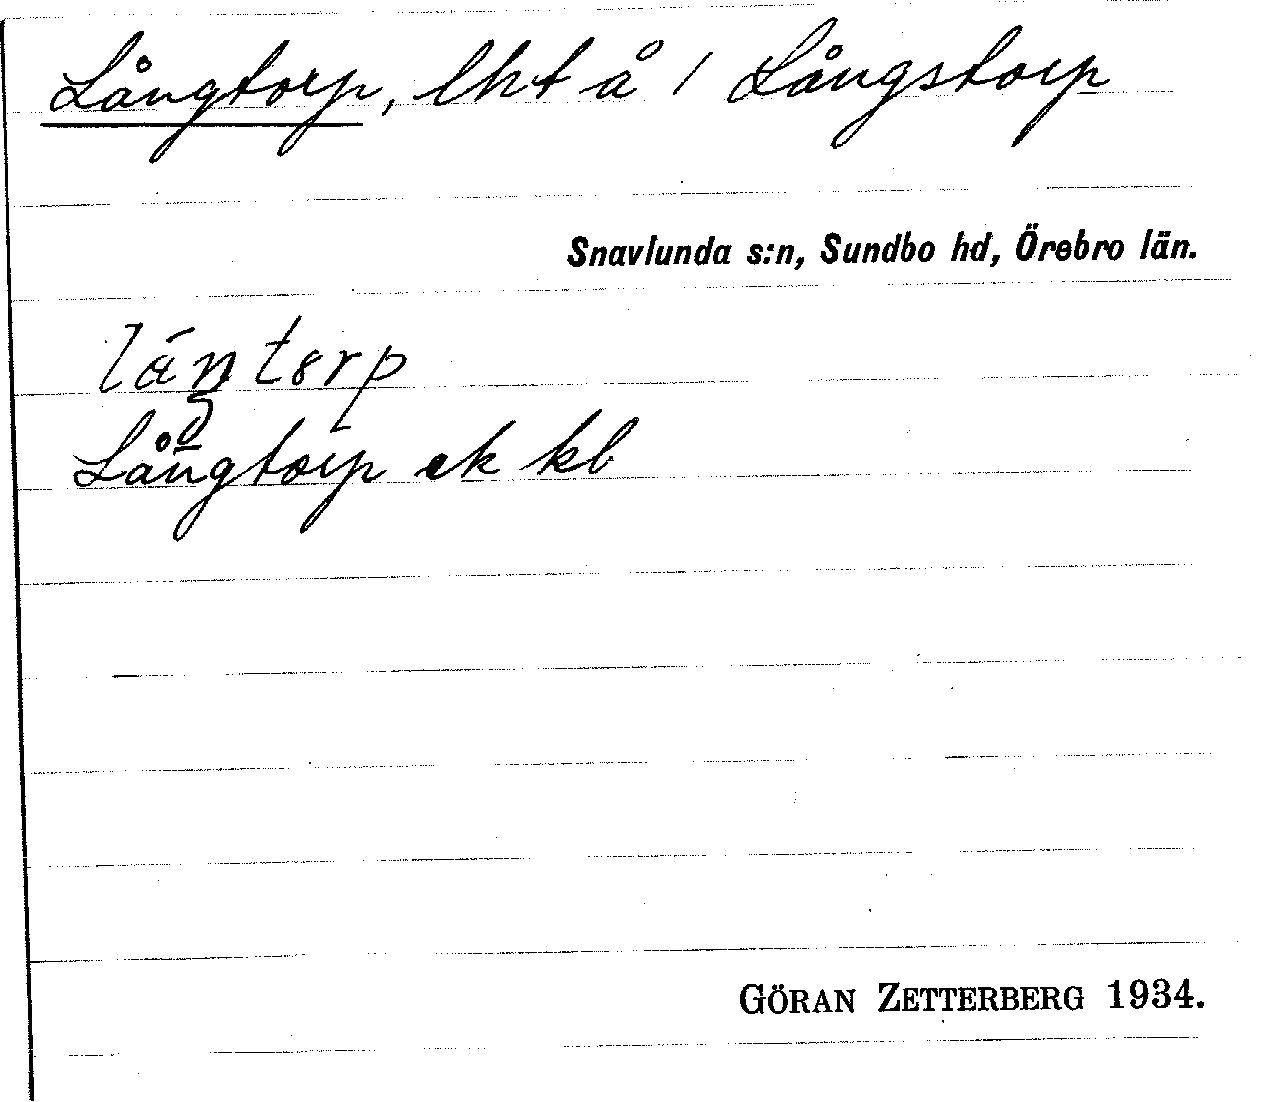 Långtorp, lht å 1 Långstorp
Snavlunda s:n, Sundbo hd, Örebro län.
Långtorp ek kb
GÖRAN ZETTERBERG 1934.